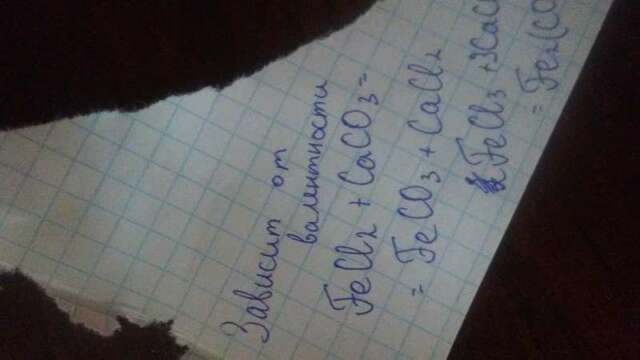 Зависит от
валентности
FeCl₂ + CaCO₃ =
= FeCO₃ + CaCl₂
FeCl₃ + 3CaC
= Fe₂(CO